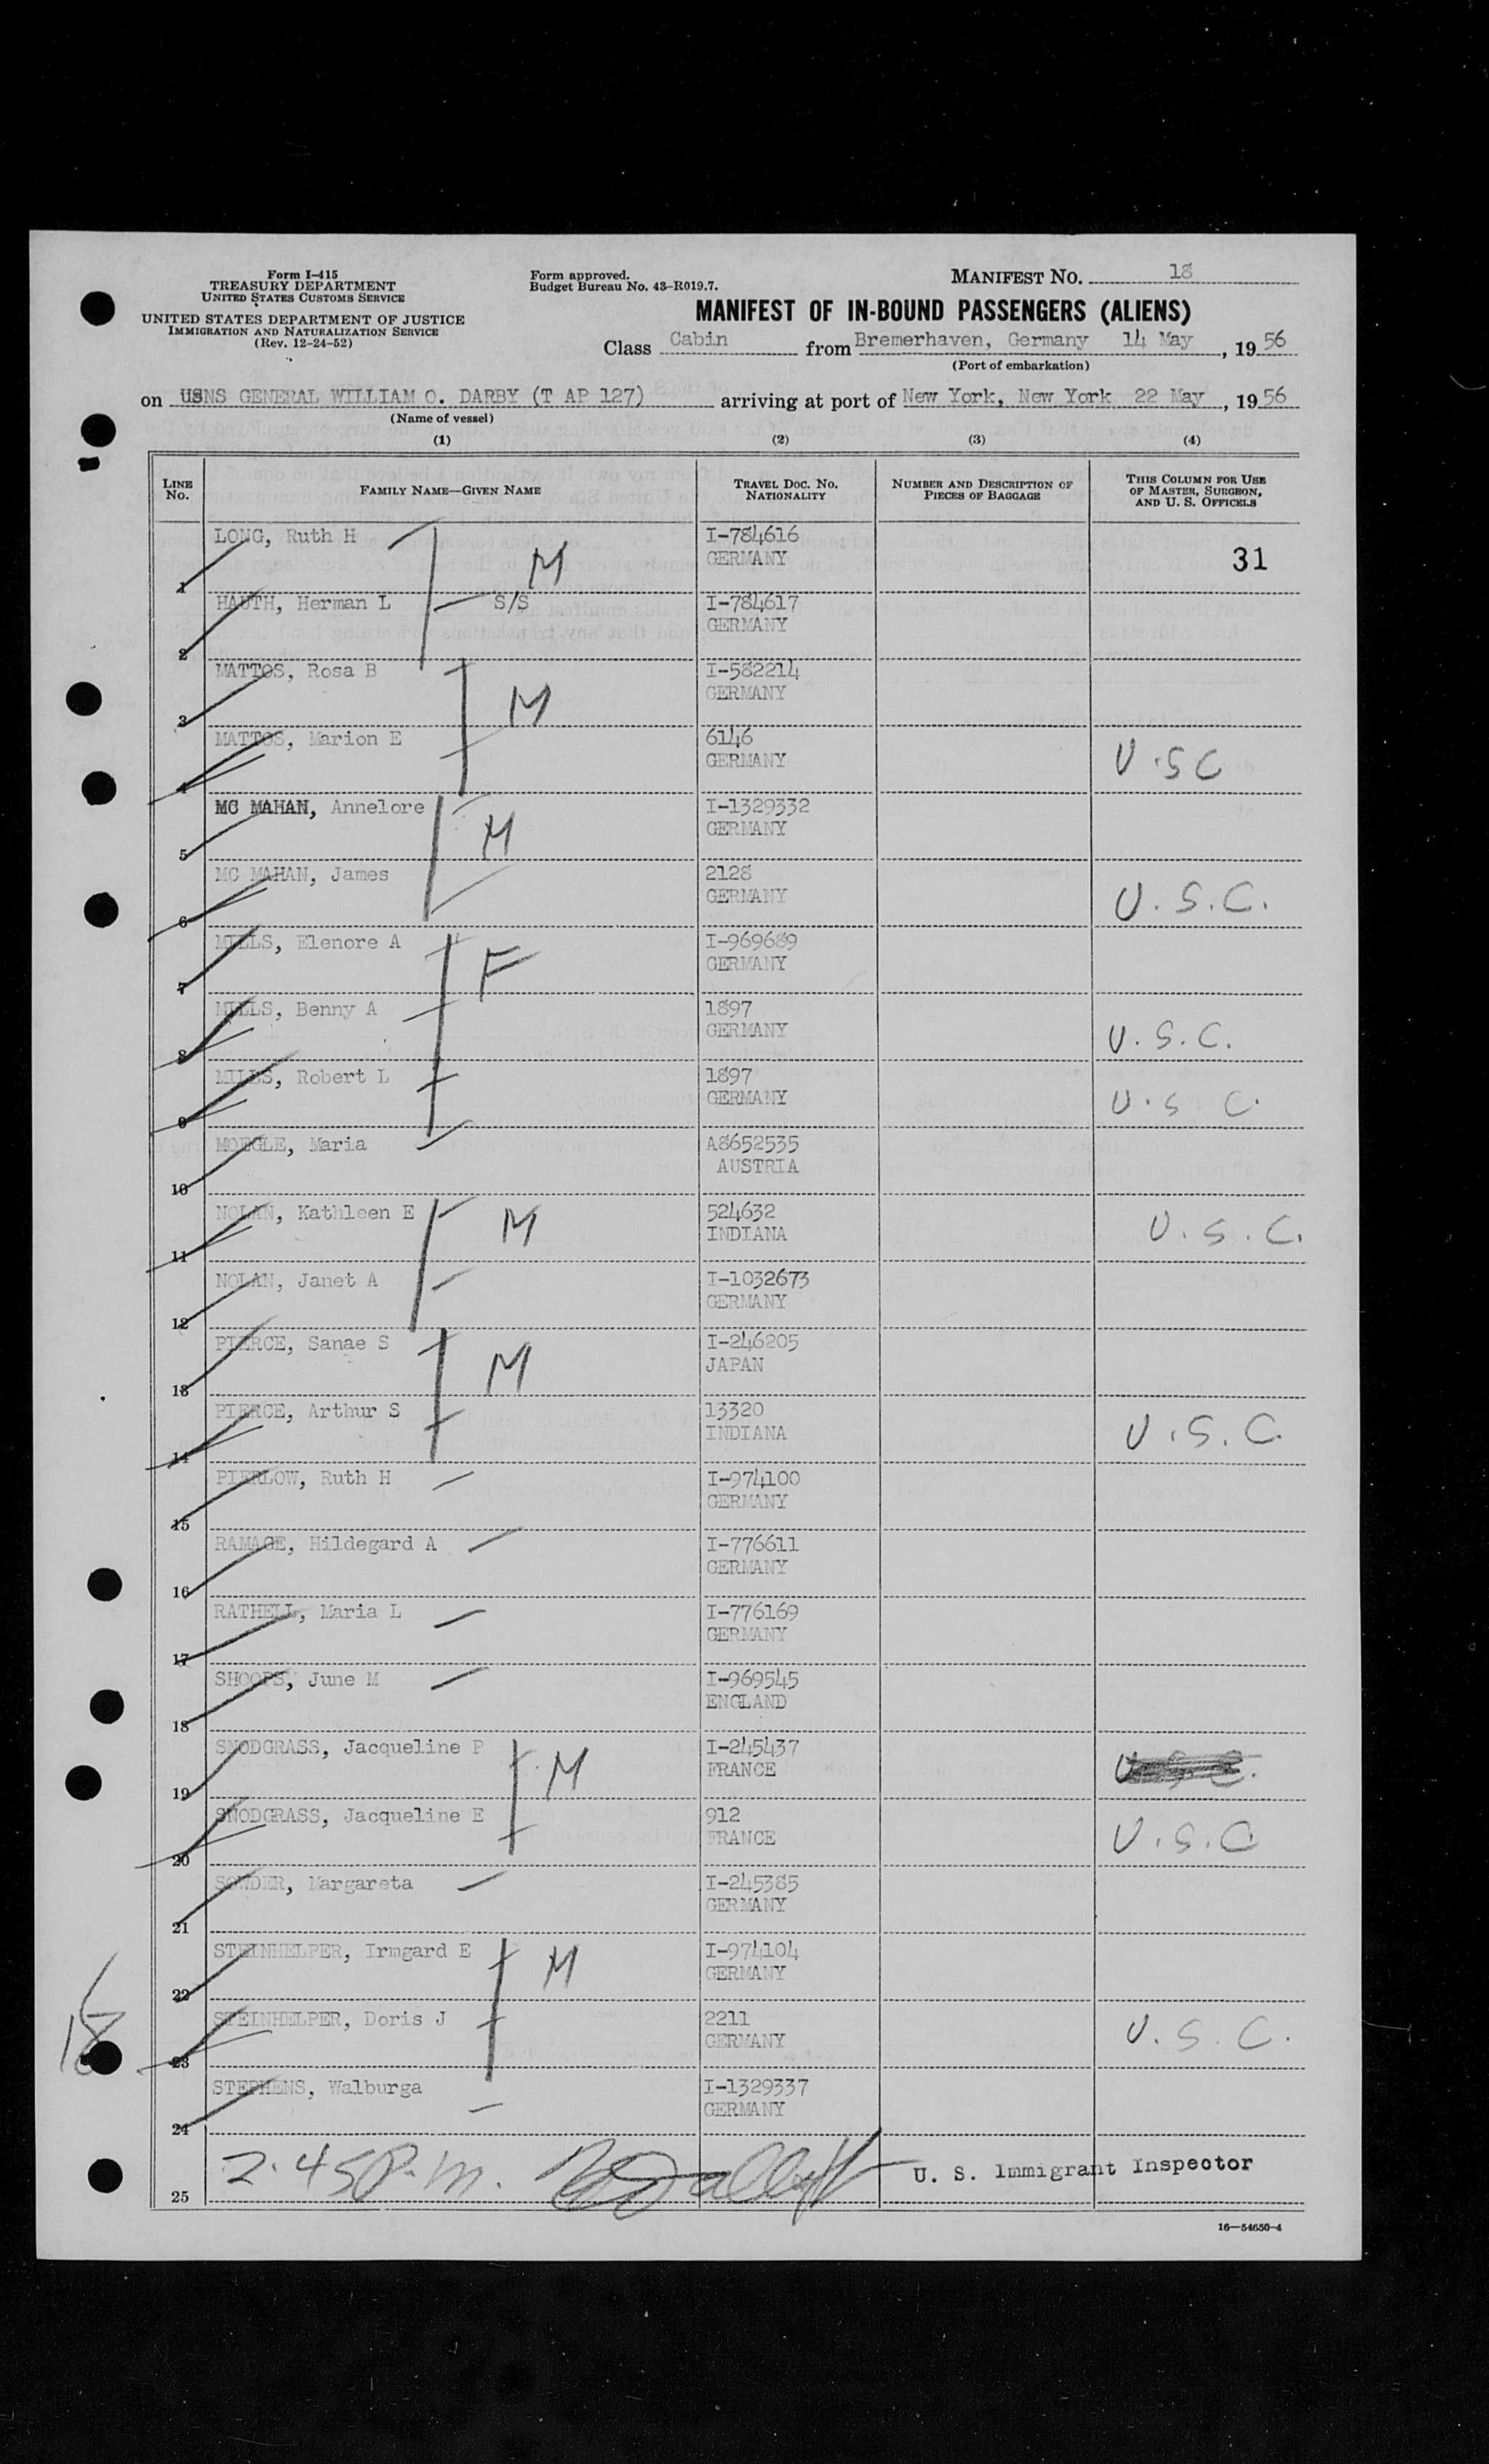 Form I-415
TREASURY DEPARTMENT
UNITED STATES CUSTOMS SERVICE
UNITED STATES DEPARTMENT OF JUSTICE
IMMIGRATION AND NATURALIZATION SERVICE
(Rev. 12-24-52)
Form approved.
Budget Bureau No. 43-R019.7.
MANIFEST NO. 18
MANIFEST OF IN-BOUND PASSENGERS (ALIENS)
Class Cabin from Bremerhaven, Germany 14 May, 1956
(Port of embarkation)
on USNS GENERAL WILLIAM O. DARBY (T AP 127) arriving at port of New York, New York 22 May, 1956
(Name of vessel)
(1) (2) (3) (4)
LINE No. FAMILY NAME—GIVEN NAME TRAVEL DOC. NO. NATIONALITY NUMBER AND DESCRIPTION OF PIECES OF BAGGAGE THIS COLUMN FOR USE OF MASTER, SURGEON, AND U. S. OFFICERS
1 LONG, Ruth H M I-784616 GERMANY 31
2 HAUTH, Herman L S/S I-784617 GERMANY
3 MATTOS, Rosa B M I-582214 GERMANY
4 MATTOS, Marion E 6146 GERMANY U.SC
5 MC MAHAN, Annelore M I-1329332 GERMANY
6 MC MAHAN, James 2128 GERMANY U.S.C.
7 MILLS, Elenore A F I-969689 GERMANY
8 MILLS, Benny A 1897 GERMANY U.S.C.
9 MILLS, Robert L 1897 GERMANY U.S C.
10 MOEGLE, Maria A8652535 AUSTRIA
11 NOLAN, Kathleen E M 524632 INDIANA U.S.C.
12 NOLAN, Janet A I-1032673 GERMANY
13 PIERCE, Sanae S M I-246205 JAPAN
14 PIERCE, Arthur S 13320 INDIANA U.S.C.
15 PIERLOW, Ruth H I-974100 GERMANY
16 RAMAGE, Hildegard A I-776611 GERMANY
17 RATHELL, Maria L I-776169 GERMANY
18 SHOOPS, June M I-969545 ENGLAND
19 SNODGRASS, Jacqueline P M I-245437 FRANCE U.S.C.
20 SNODGRASS, Jacqueline E 912 FRANCE U.S.C
21 SOWDER, Margareta I-245385 GERMANY
22 STEINHELPER, Irmgard E M I-974104 GERMANY
23 STEINHELPER, Doris J 2211 GERMANY U.S.C.
24 STEPHENS, Walburga I-1329337 GERMANY
18
25 2.45P.m. U. S. Immigrant Inspector
16—54650-4